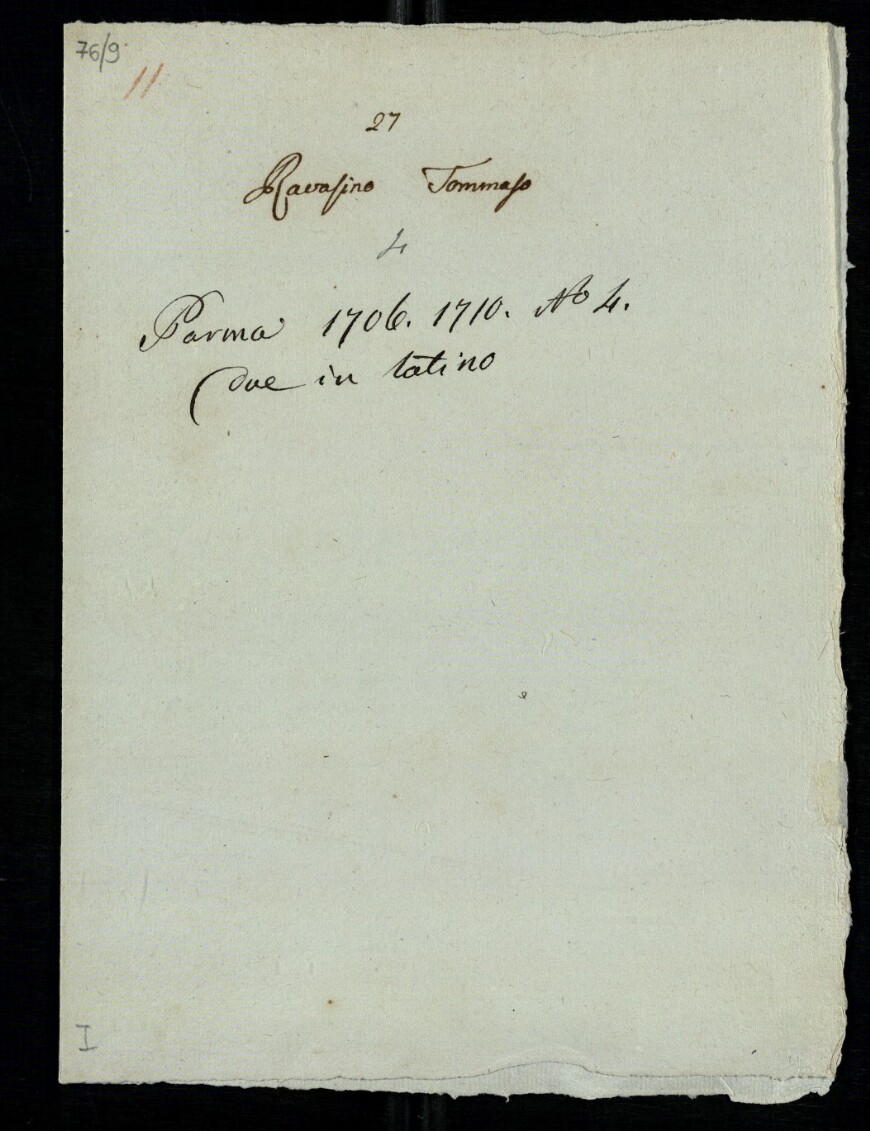 76/9
11
27
Ravasino Tommaso
4
Parma 1706. 1710. No 4.
(due in latino
I